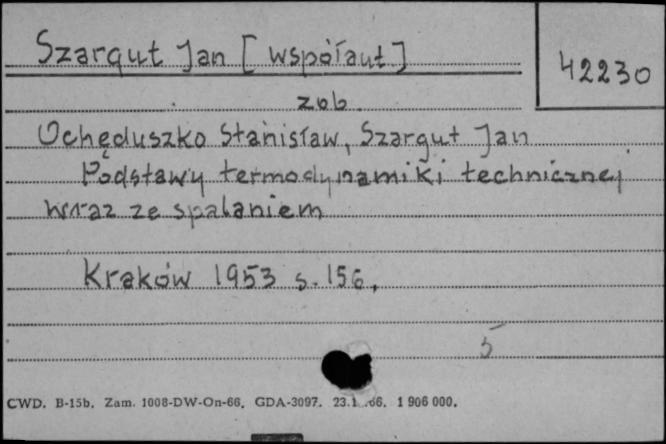 Szargut Jan [współaut]
42230
zob.
Ochęduszko Stanisław, Szargut Jan
Podstawy termodynamiki technicznej
wraz ze spalaniem
Kraków 1953 s. 156,
5
CWD. B-15b. Zam. 1008-DW-On-66. GDA-3097. 1 906 000.